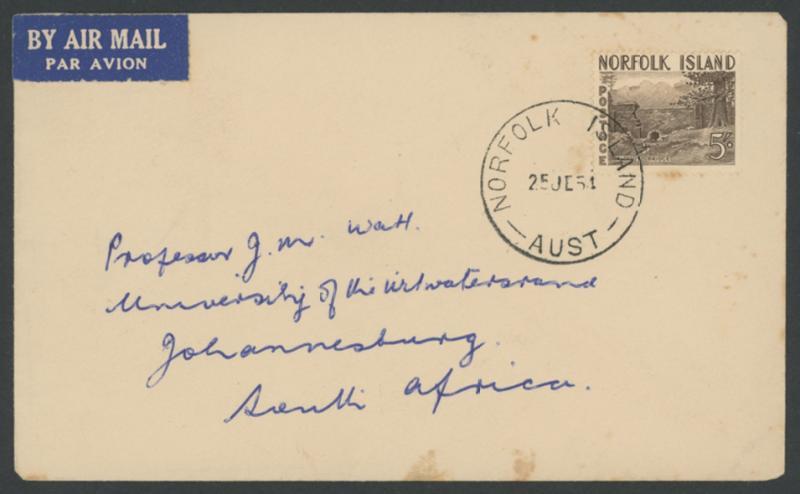 BY AIR MAIL
PAR AVION
NORFOLK ISLAND
POSTAGE
5/-
NORFOLK ISLAND
25JE54
AUST
Professor J. M. Watt.
University of the Witwatersrand
Johannesburg.
South Africa.